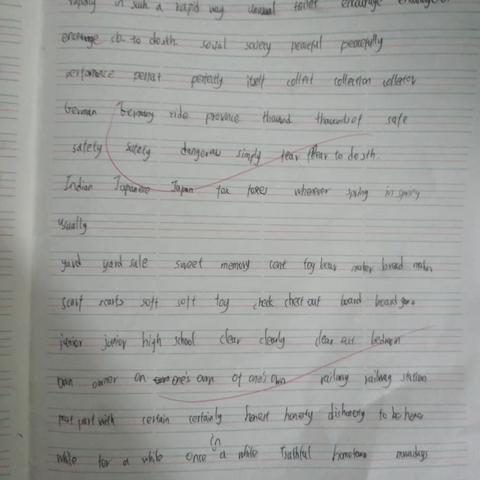 rapidly in such a rapid way unusual toilet encourage encourage
encourage sb. to do sth. social society peaceful peacefully
performance perfect perfectly itself collect collection collector
German Germany ride province thousand thousands of safe
safety safely dangerous simply fear fear to do sth.
Indian Japanese Japan fox foxes whenever spring in spring
usually
yard yard sale sweet memory cent toy bear maker bread maker
scarf scarfs soft soft toy check check out board board game
junior junior high school clear clearly clear out bedroom
own owner on one's own of one's own railway railway station
part part with certain certainly honest honesty dishonesty to be honest
while for a while once in a while truthful hometown nowadays